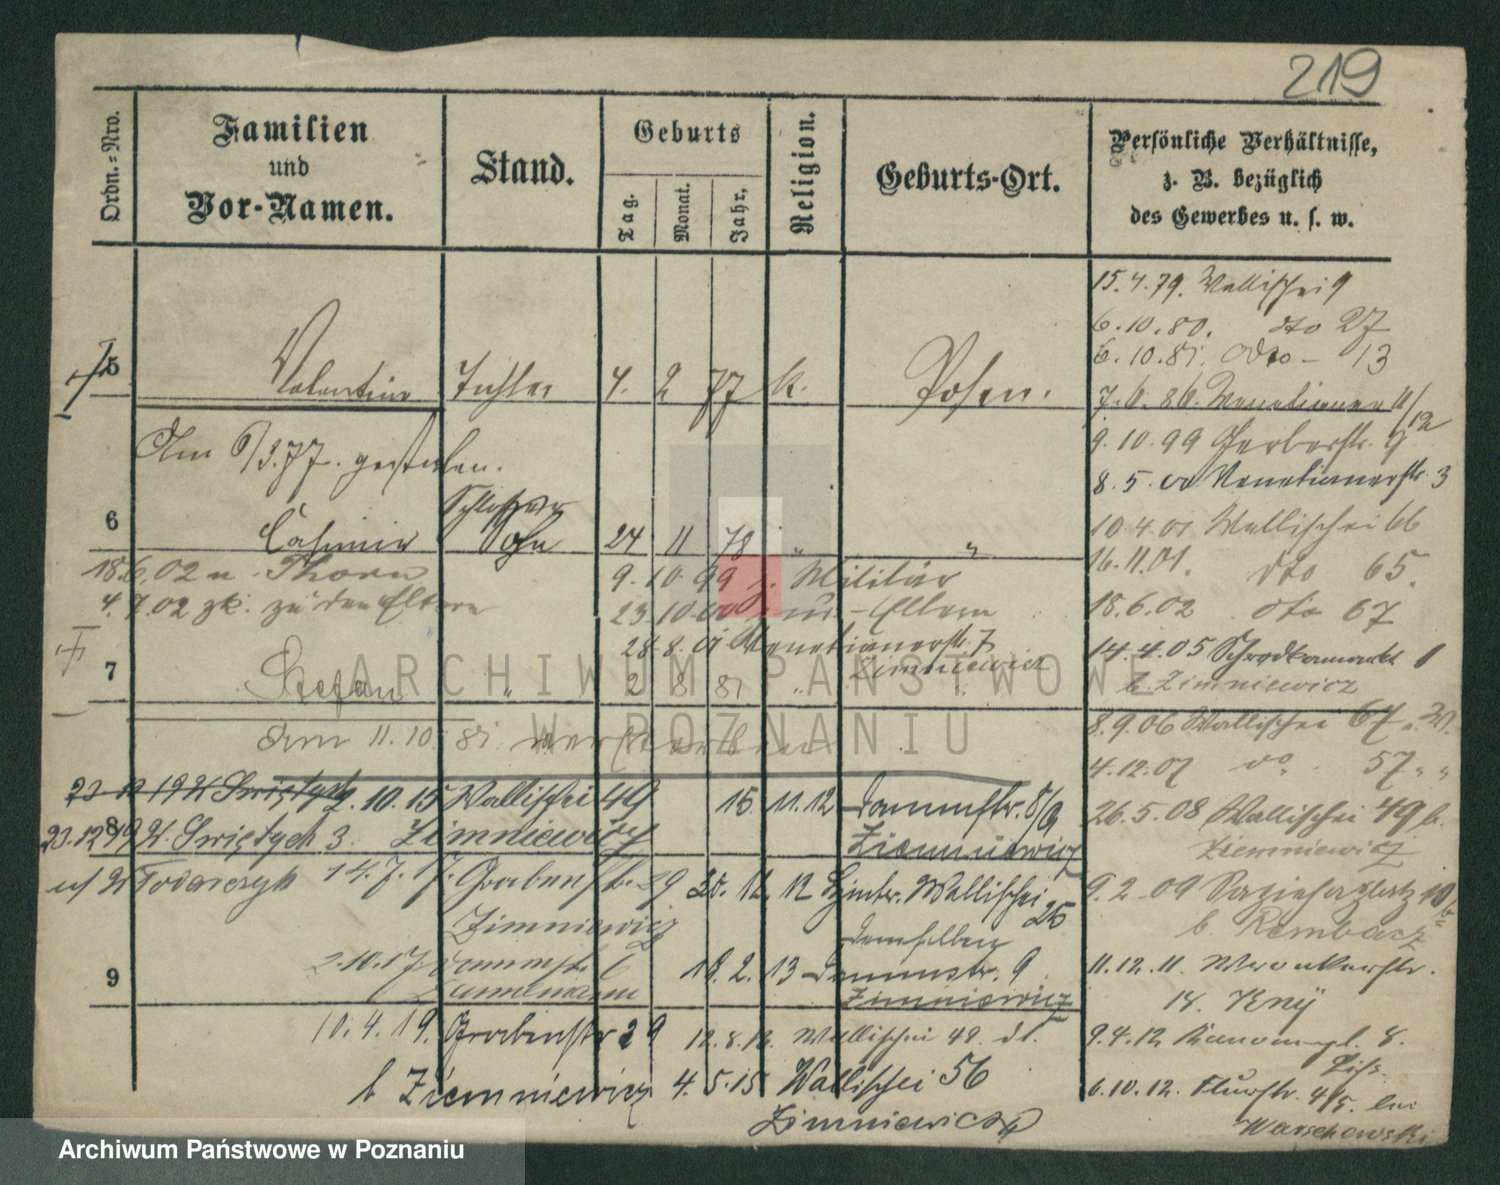 219
Ordn.=Nro.
Familien
und
Vor-Namen.
Stand.
Geburts
Tag.
Monat.
Jahr,
Religion.
Geburts-Ort.
Persönliche Verhältnisse,
z. B. bezüglich
des Gewerbes u. s. w.
15.4.79. Wallischei 9
6.10.80. dto 27
6.10.81. dto 13
5
Valentine Tochter 4. 2 77 k. Posen.
7.6.86. Venetianer 11/12
Am 6/3.77. gestorben.
9.10.99 Gerberstr. 9
8.5.00 Venetianerstr. 3
6
Casimir Schlosser Sohn 24 11 78 " "
10.4.01 Wallischei 66
18.6.02 n. Thorn
9.10.99 z. Militär
16.11.01. dto 65.
4.9.02 zk. zu den Eltern
23.10.00 Eltern
18.6.02 dto 67
28.8.01 Venetianerstr. 7
Zimniewicz
14.4.05 Schrodkamarkt 1
b. Zimniewicz
7
Stefan " 2 8 81 " "
8.9.06 Wallischei 67
am 11.10.81. verstorben
4.12.07 do. 57 " "
23 12 19 W. Swiętych
2.10.15 Wallischei 49
15.11.12 Dammstr. 8/9
26.5.08 Wallischei 49 b.
8
23.12.19 W. Swiętych 3. Zimniewicz
Ziemniewicz
Ziemniewicz
14.7.17. Grabenstr. 29
28.12.12 Wallischei 25
9.2.09 Sapiehaplatz 10
Zimniewicz
b. Rembacz
9
2.10.17 Dammstr.
19.2.13 Dammstr. 9
11.12.11. Wronkerstr.
Zimniewicz
10.4.19. Grabenstr 29
12.8.13. Wallischei 49.
9.4.12 Kanonenpl. 8.
b Ziemniewicz
4.5.15 Wallischei 56
6.10.12. Flurstr. 4/5. bei
Zimniewicz
Warschawski
ARCHIWUM PAŃSTWOWE
W POZNANIU
Archiwum Państwowe w Poznaniu